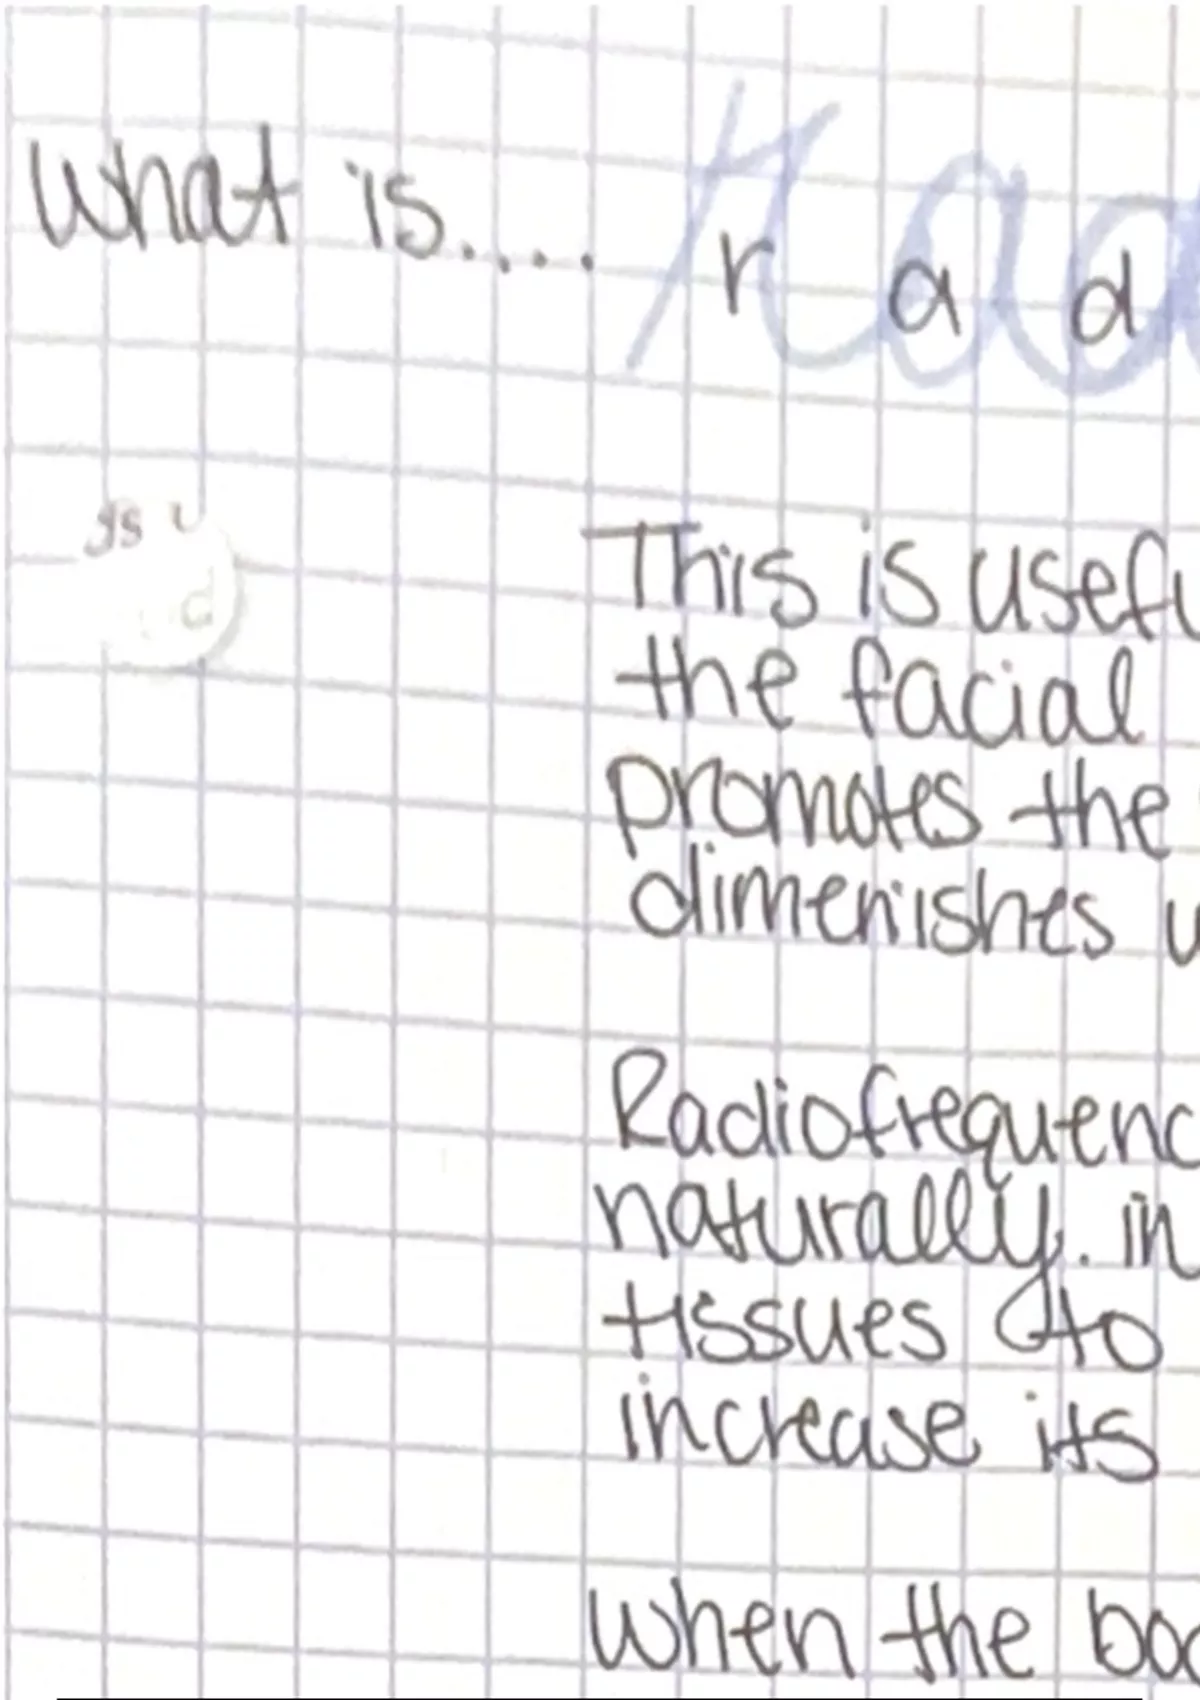 What is.... r a d
This is usef
the facial
promotes the
dimenishes
Radiofrequenc
naturally. in
tissues to
increase its
when the bod